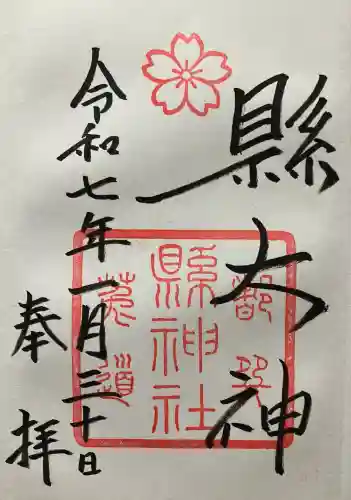 縣大神
都
縣神社
菟道
令和七年一月三十日
奉拝